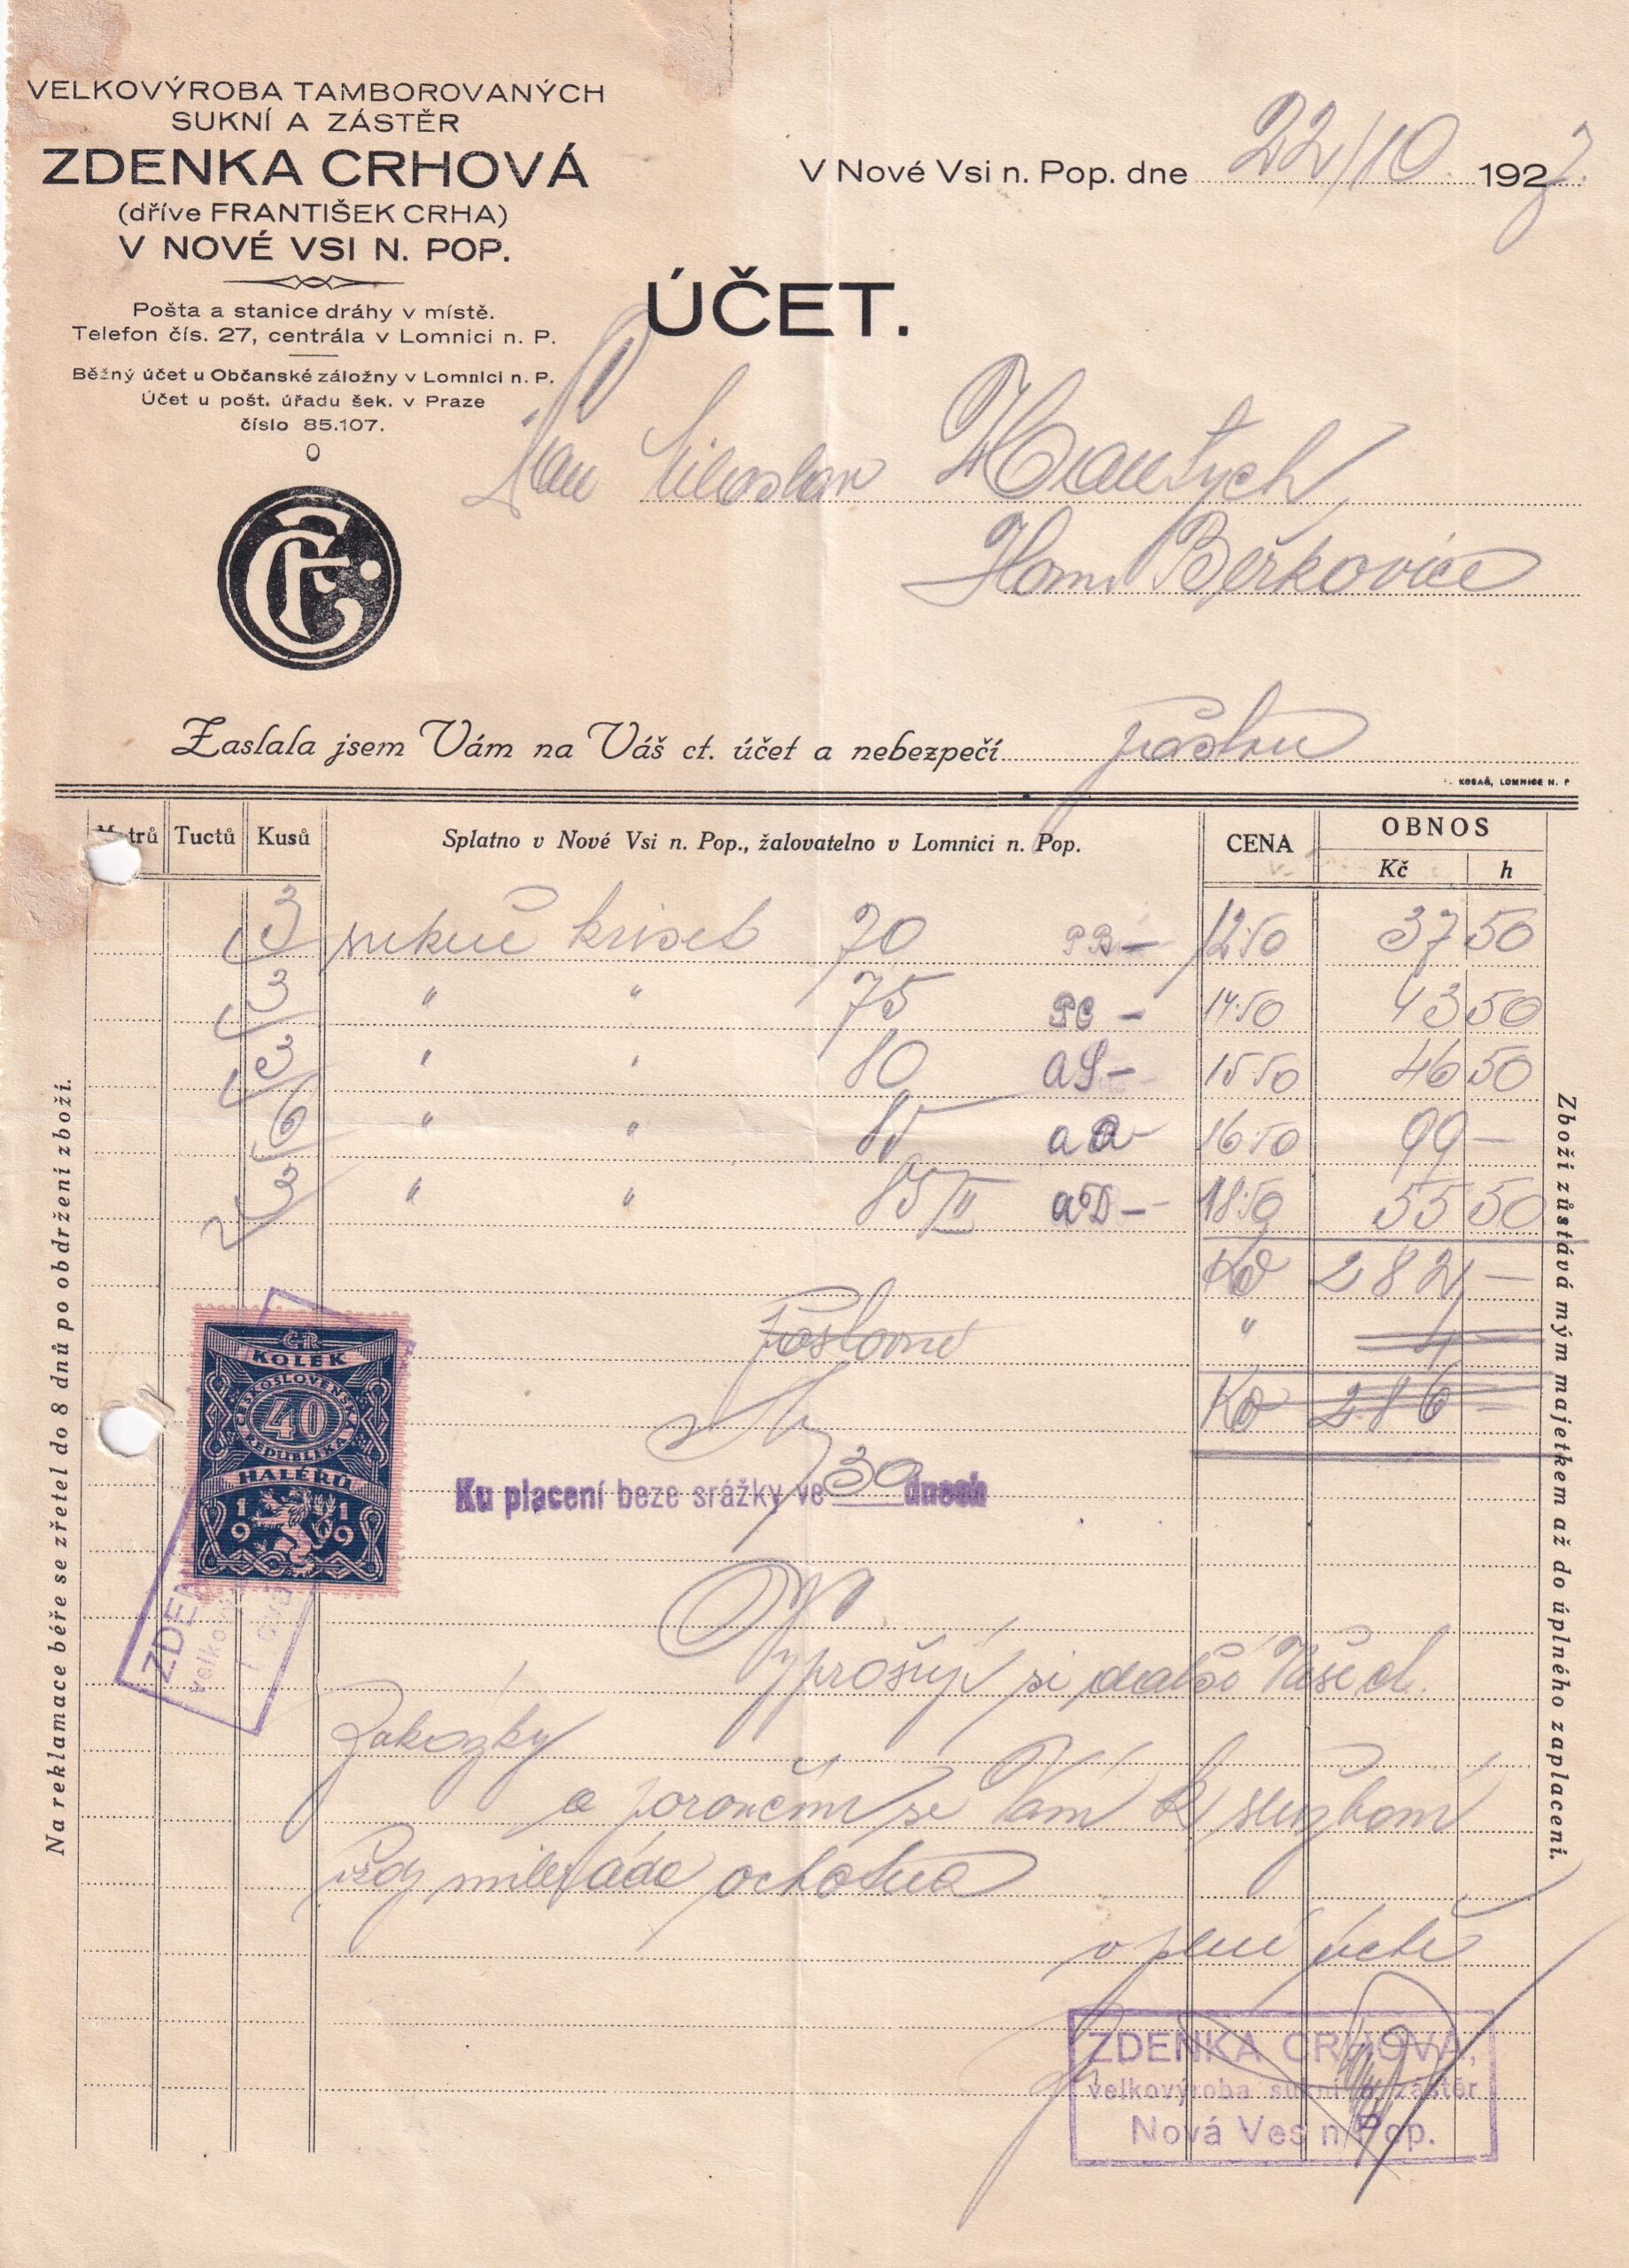 VELKOVÝROBA TAMBOROVANÝCH
SUKNÍ A ZÁSTĚR
ZDENKA CRHOVÁ
(dříve FRANTIŠEK CRHA)
V NOVÉ VSI N. POP.
Pošta a stanice dráhy v místě.
Telefon čís. 27, centrála v Lomnici n. P.
Běžný účet u Občanské záložny v Lomnici n. P.
Účet u pošt. úřadu šek. v Praze
číslo 85.107.
V Nové Vsi n. Pop. dne 22/10 1927.
ÚČET.
Pan Miloslav
Horní Beřkovice
Zaslala jsem Vám na Váš ct. účet a nebezpečí poštou
KOSAŘ, LOMNICE N. P
Metrů Tuctů Kusů Splatno v Nové Vsi n. Pop., žalovatelno v Lomnici n. Pop. CENA OBNOS
Kč h
3 sukně 70 PB- 12.50 37 50
3 " " 75 PC - 14.50 43 50
3 " " 80 aS- 15.50 46 50
6 " " 85 aa- 16.50 99 -
3 " " 85/II aD- 18.50 55 50
Kč 282 -
Poštovné " 4 -
Kč 286 -
ČR
KOLEK
ČESKOSLOVENSKÁ
40
REPUBLIKA
HALÉŘŮ
1919
Ku placení beze srážky ve 30 dnech
ZDEN
velkov
Vyprošuji si další Vašich
zakázky
a poroučím se Vám k službám
vždy mileráda ochotná
v plné úctě
ZDENKA CRHOVÁ,
velkovýroba sukní a zástěr
Nová Ves n. Pop.
Na reklamace béře se zřetel do 8 dnů po obdržení zboží.
Zboží zůstává mým majetkem až do úplného zaplacení.